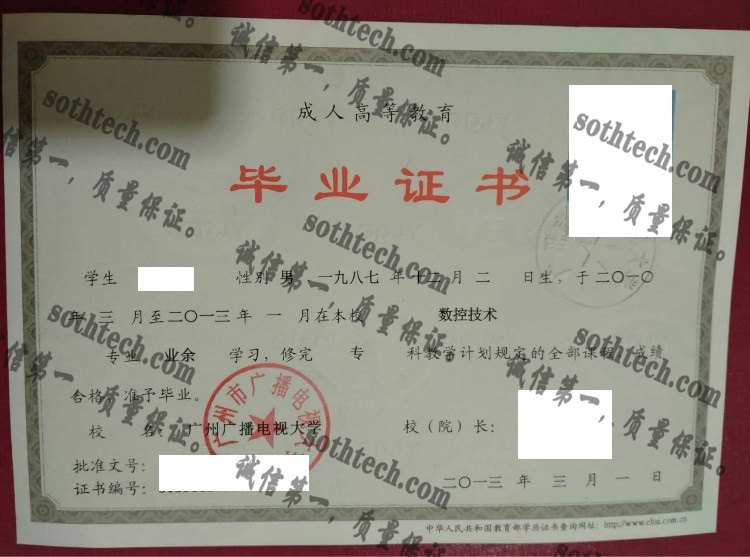 成人高等教育
毕业证书
学生 性别 男 ,一九八七 年 十二 月 二 日生,于 二〇一〇
年 三 月至 二〇一三 年 一 月在本校 数控技术
专业 业余 学习,修完 专 科教学计划规定的全部课程,成绩
合格,准予毕业。
校 名: 广州广播电视大学
校(院)长:
批准文号:
证书编号:
二〇一三 年 三 月 一 日
中华人民共和国教育部学历证书查询网址: http://www.chsi.com.cn
广州市广播电视大
sothtech.com
诚信第一,质量保证。
sothtech.com
诚信第一,质量保证。
sothtech.com
诚信第一,质量保证。
sothtech.com
诚信第一,质量保证。
sothtech.com
诚信第一,质量保证。
sothtech.com
诚信第一,质量保证。
sothtech.com
诚信第一,质量保证。
sothtech.com